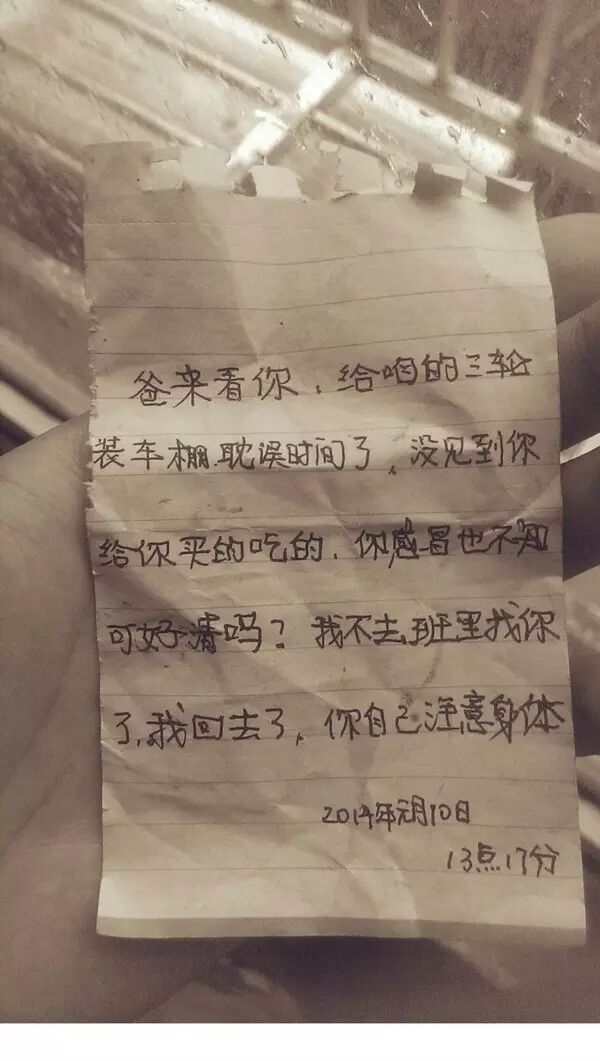 爸来看你，给咱的三轮
装车棚.耽误时间了，没见到你
给你买的吃的.你感冒也不知
可好清吗？我不去班里找你
了,我回去了，你自己注意身体
2014年元月10日
13点17分